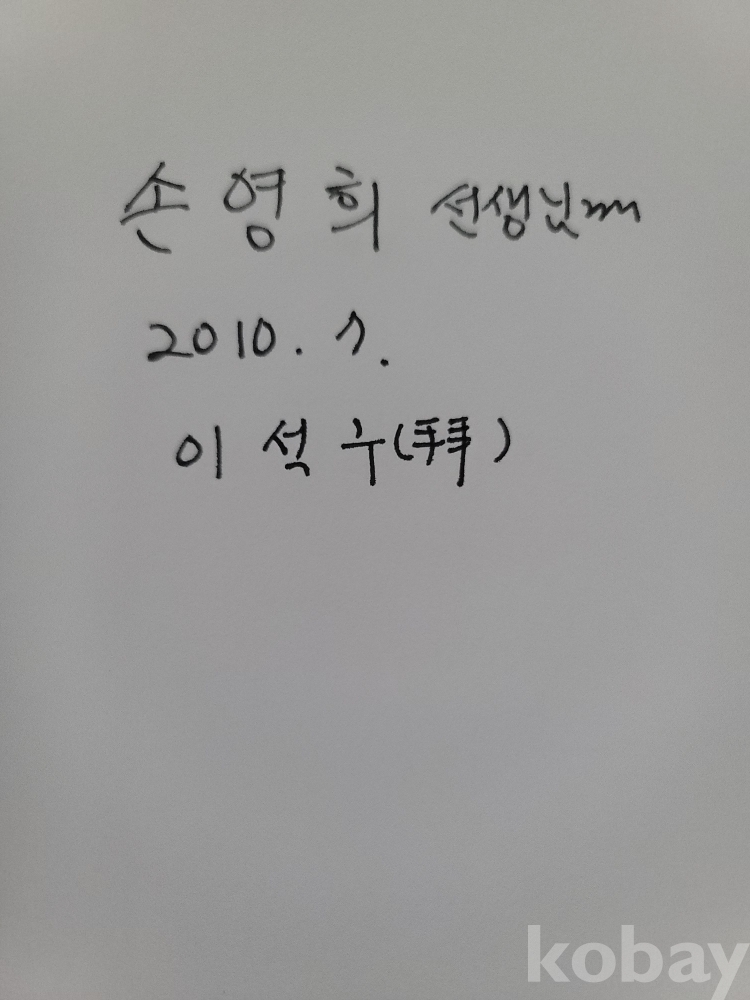 손 영 희 선생님
2010. 7.
이 석 수(拜)
kobay